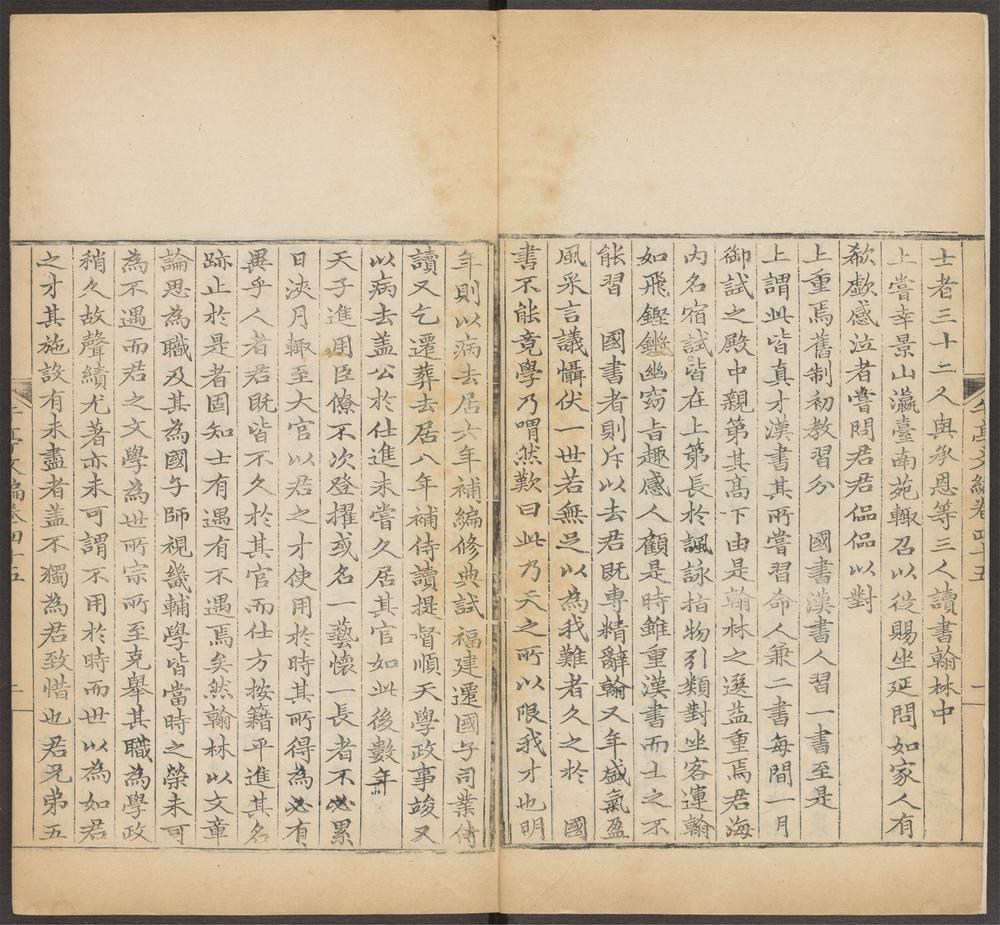 午亭文編卷四十五
士者三十二人與承恩等三人讀書翰林中
上嘗幸景山瀛臺南苑輙召以從賜坐延問如家人有
欷歔感泣者嘗問君君偘偘以對
上重焉舊制初教習分　國書漢書人習一書至是
上謂此皆真才漢書其所嘗習命人兼二書每間一月
御試之殿中親第其高下由是翰林之選益重焉君海
内名宿試皆在上第長於諷詠指物引類對坐客運翰
如飛鏗鏘幽窈旨趣感人顧是時雖重漢書而士之不
能習　國書者則斥以去君既專精辭翰又年盛氣盈
風采言議懾伏一世若無足以為我難者久之於　國
書不能竟學乃喟然歎曰此乃天之所以限我才也明
年則以病去居六年補編修典試福建遷國子司業侍
讀又乞還葬去居八年補侍讀提督順天學政事竣又
以病去盖公於仕進未嘗久居其官如此後數年
天子進用臣僚不次登擢或名一藝懷一長者不必累
日浹月輙至大官以君之才使用於時其所得為必有
異乎人者君既皆不久於其官而仕方按籍平進其名
跡止於是者固知士有遇有不遇焉矣然翰林以文章
論思為職及其為國子師視畿輔學皆當時之榮未可
為不遇而君之文學為世所宗所至克舉其職為學政
稍久故聲績尤著亦未可謂不用於時而世以為如君
之才其施設有未盡者盖不獨為君致惜也君兄弟五
午亭文編卷四十五